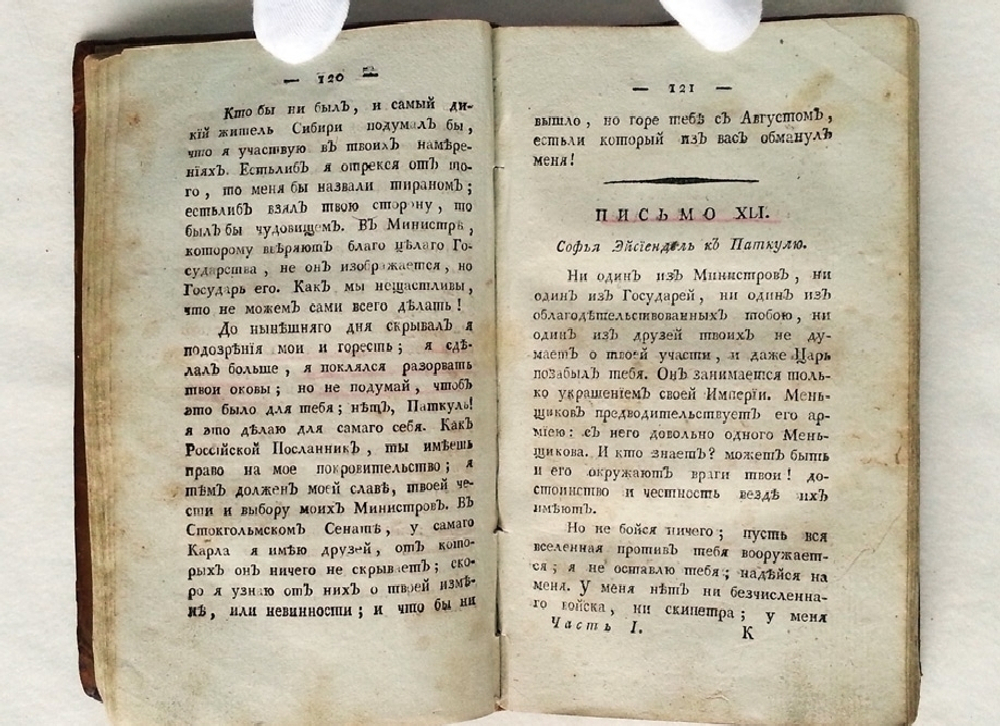 — 120 —
Кто бы ни былЪ, и самый ди-
кій житель Сибири подумалЪ бы,
что я участвую вЪ твоихЪ намѣре-
ніяхЪ. ЕстьлибЪ я отрекся отЪ то-
го, то меня бы назвали тираномЪ;
естьлибЪ взялЪ твою сторону, то
былЪ бы чудовищемЪ. ВЪ Министрѣ,
которому ввѣряютЪ благо цѣлаго Го-
сударства, не онЪ изображается, но
Государь его. КакЪ мы нещастливы,
что не можемЪ сами всего дѣлать!
До нынѣшняго дня скрывалЪ я
подозрѣнія мои и горесть; я сдѣ-
лалЪ больше, я поклялся разорвать
твои оковы; но не подумай, чтобЪ
это было для тебя; нѣтЪ, Паткуль!
я это дѣлаю для самаго себя. КакЪ
Россійской ПосланникЪ, ты имѣешь
право на мое покровительство; я
тѣмЪ долженЪ моей славѣ, твоей че-
сти и выбору моихЪ МинистровЪ. ВЪ
СтокгольмскомЪ Сенатѣ, у самаго
Карла я имѣю друзей, отЪ кото-
рыхЪ онЪ ничего не скрываетЪ; ско-
ро я узнаю отЪ нихЪ о твоей измѣ-
нѣ, или невинности; и что бы ни
— 121 —
вышло, но горе тебѣ сЪ АвгустомЪ,
естьли который изЪ васЪ обманулЪ
меня!
ПИСЬМО XLI.
Софья Эйсіендель кЪ Паткулю.
Ни одинЪ изЪ МинистровЪ, ни
одинЪ изЪ Государей, ни одинЪ изЪ
облагодѣтельствованныхЪ тобою, ни
одинЪ изЪ друзей твоихЪ не ду-
маетЪ о твоей участи, и даже Царь
позабылЪ тебя. ОнЪ занимается толь-
ко украшеніемЪ своей Имперіи. Мень-
щиковЪ предводительствуетЪ его ар-
міею: сЪ него довольно одного Мень-
щикова. И кто знаетЪ? можетЪ быть
и его окружаютЪ враги твои! до-
стоинство и честность вездѣ ихЪ
имѣютЪ.
Но не бойся ничего; пусть вся
вселенная противЪ тебя вооружает-
ся; я не оставлю тебя; надѣйся на
меня. У меня нѣтЪ ни безчисленна-
го войска, ни скипетра; у меня
Часть I. К